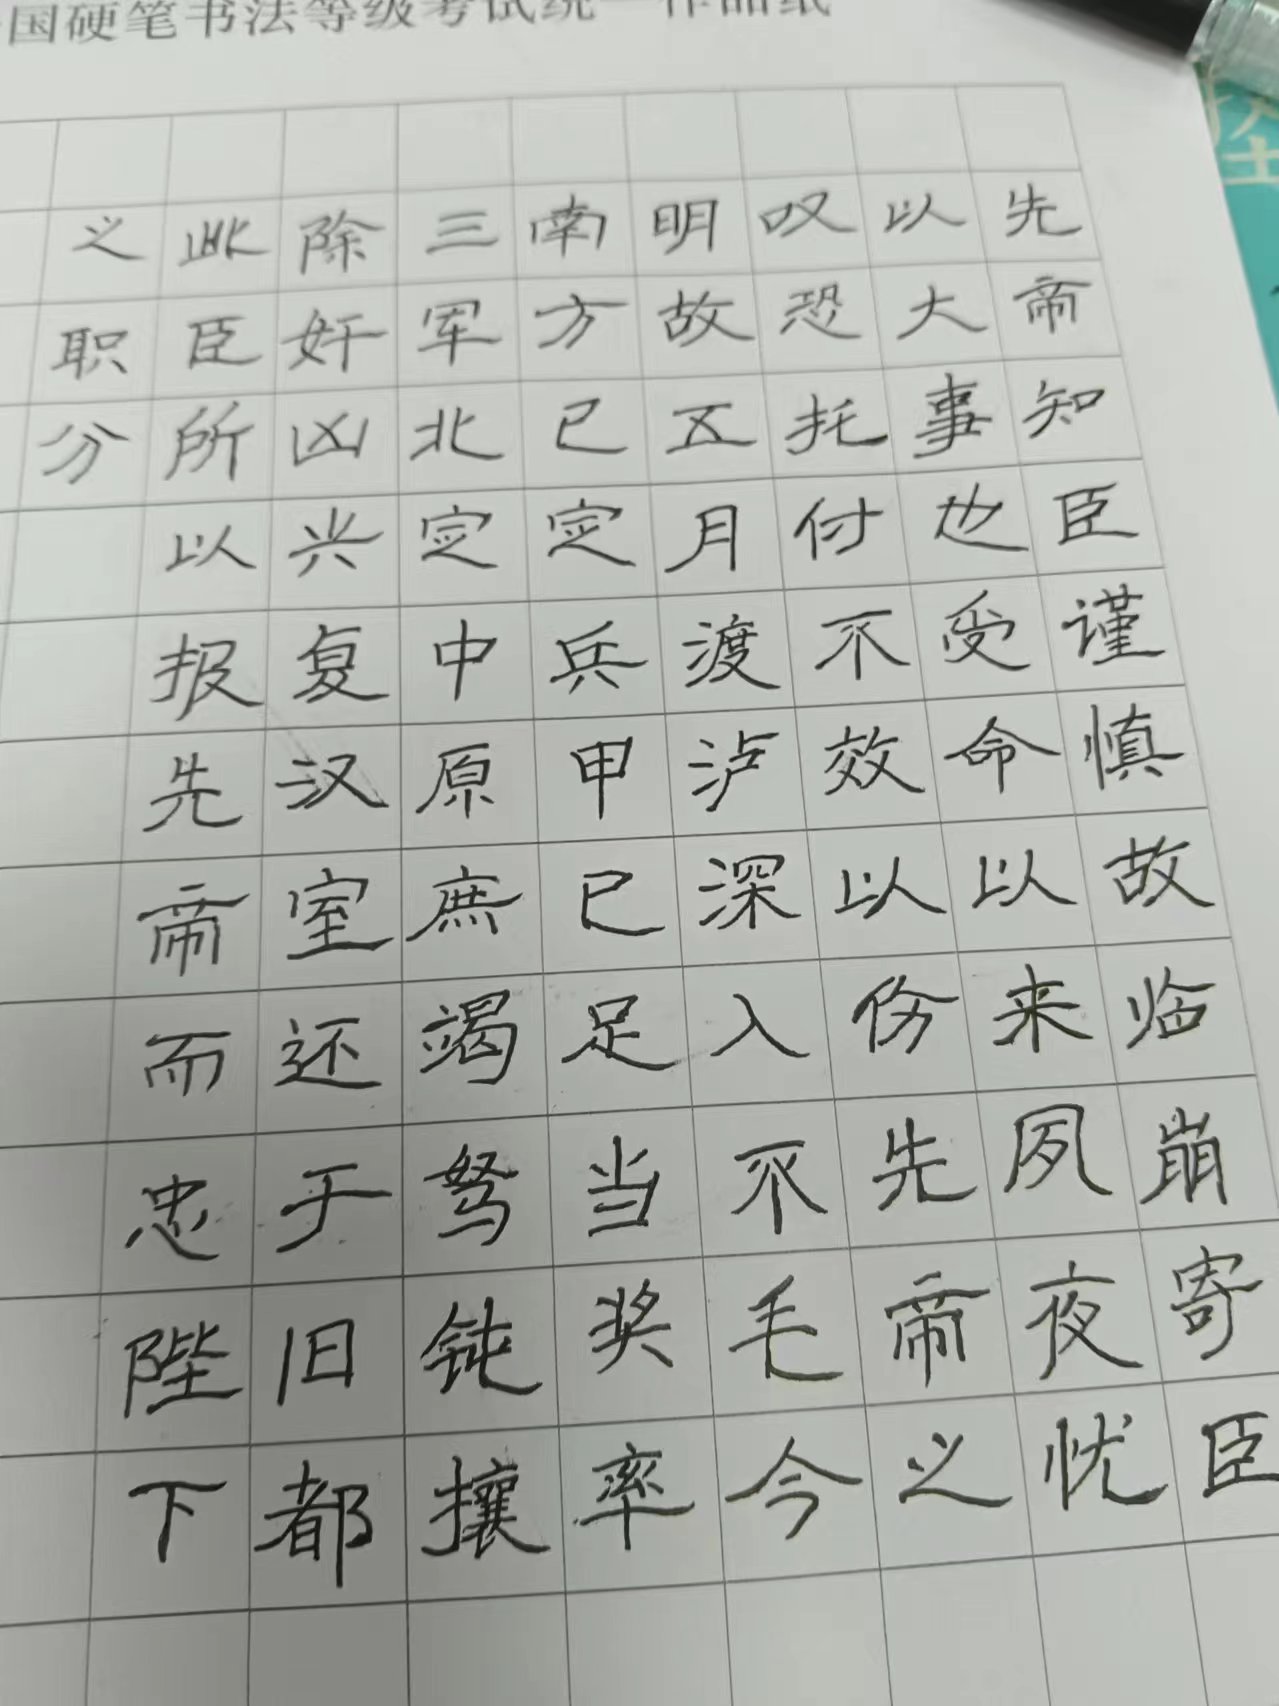 国硬笔书法等级考试统一作品纸
先帝知臣谨慎故临崩寄臣
以大事也受命以来夙夜忧
叹恐托付不效以伤先帝之
明故五月渡泸深入不毛今
南方已定兵甲已足当奖率
三军北定中原庶竭驽钝攘
除奸凶兴复汉室还于旧都
此臣所以报先帝而忠陛下
之职分